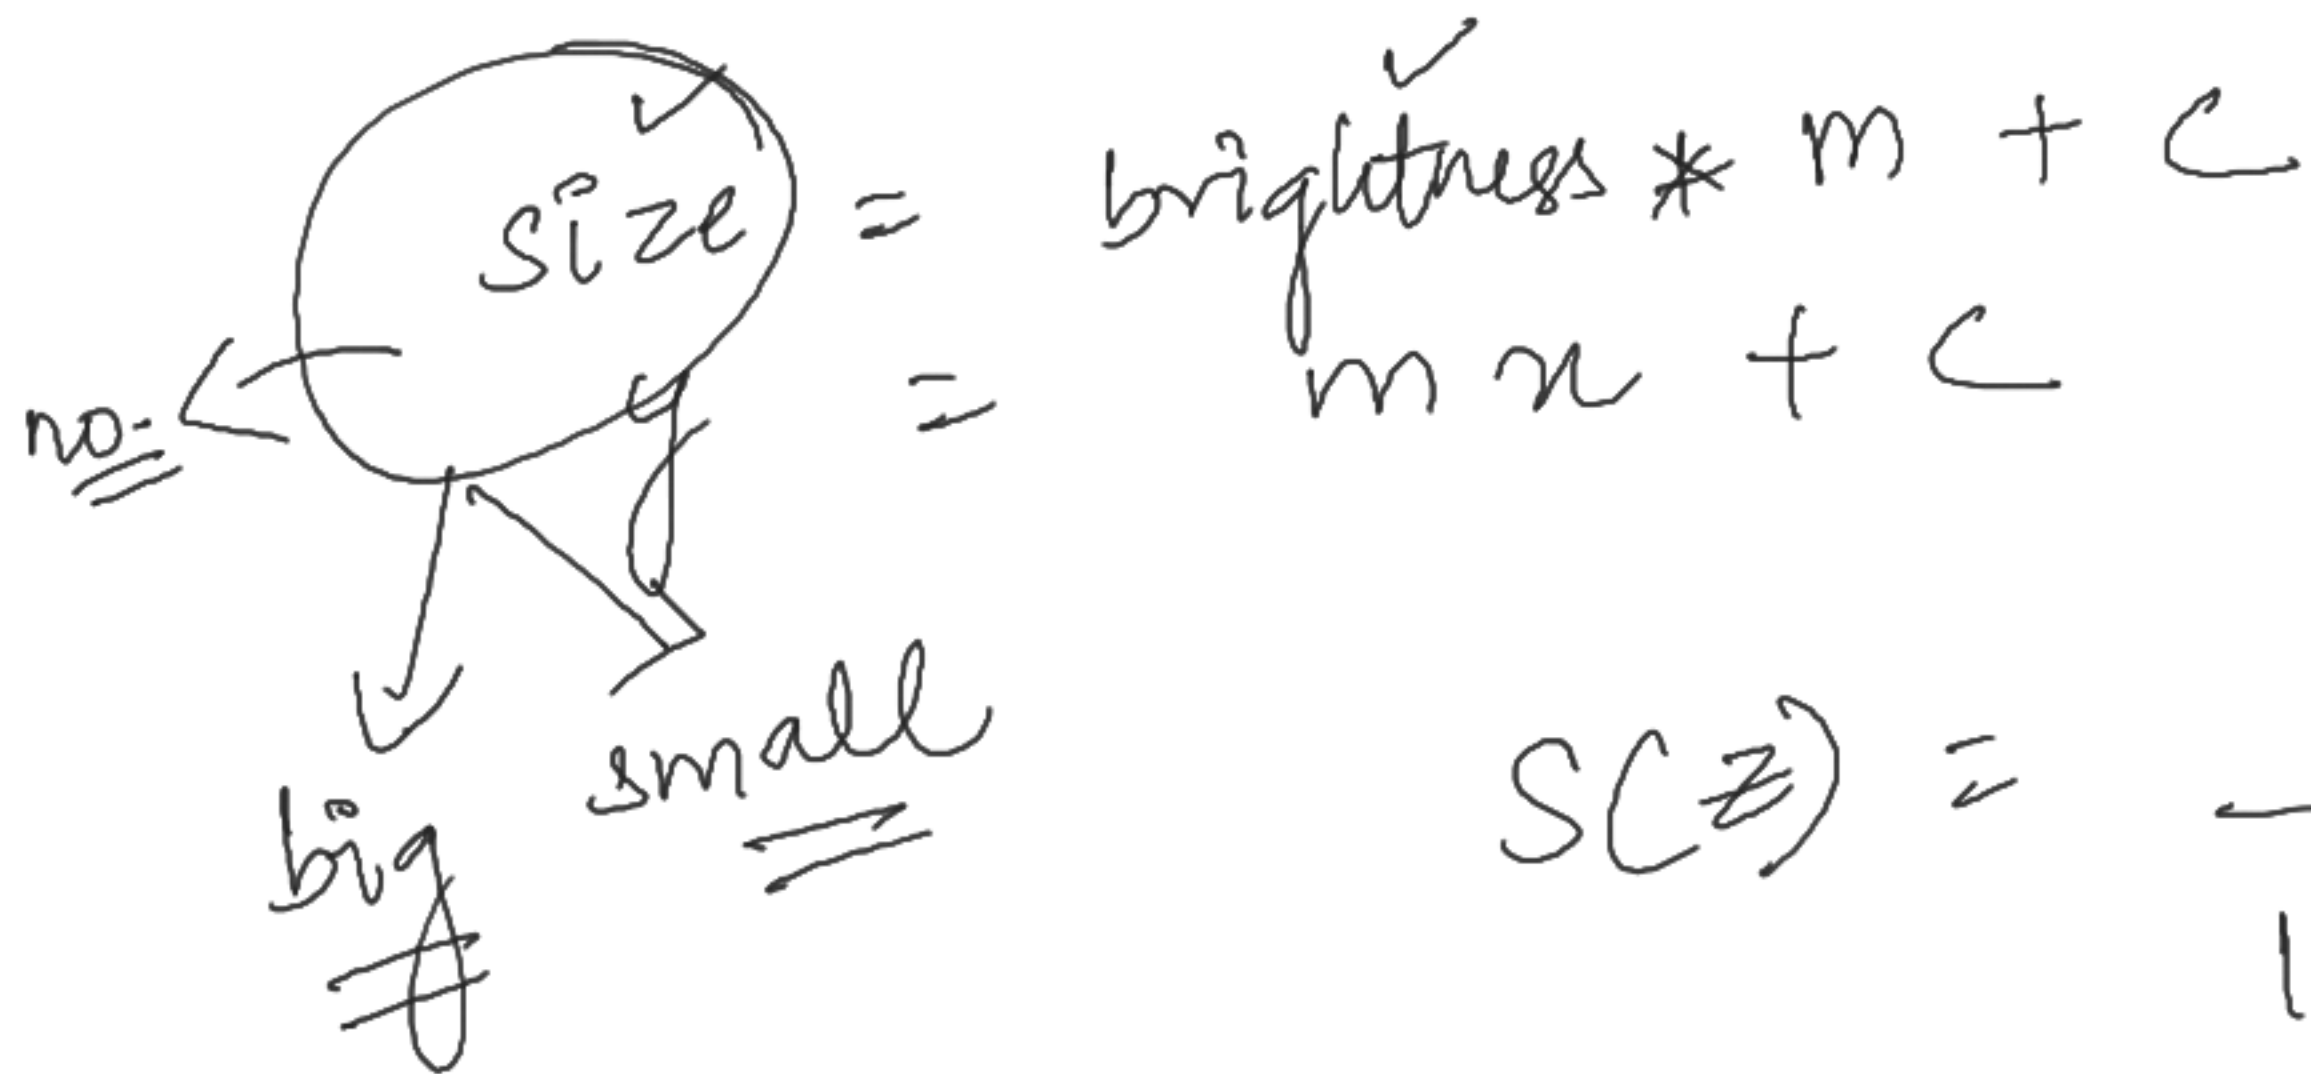 size = brightness * m + c
y = mx + c
no.
big small
S(z) =
1